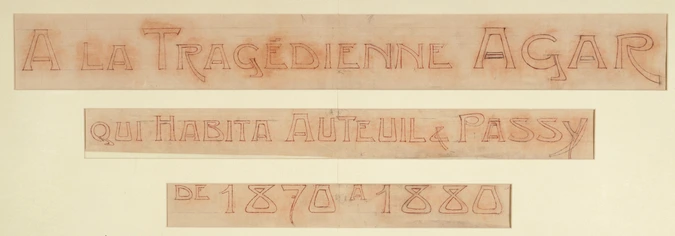 A LA TRAGÉDIENNE AGAR
QUI HABITA AUTEUIL & PASSY
DE 1870 A 1880